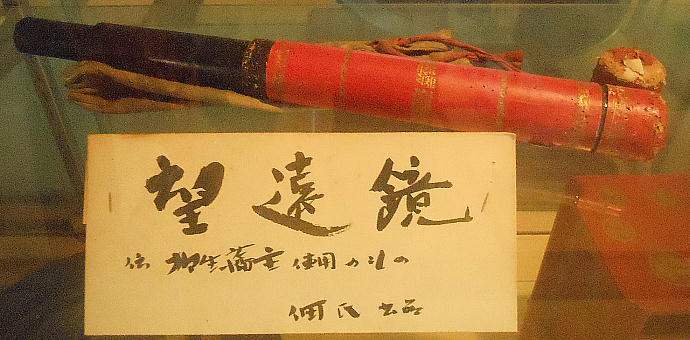 望遠鏡
伝 柳生藩主 使用のもの
佃氏 出品